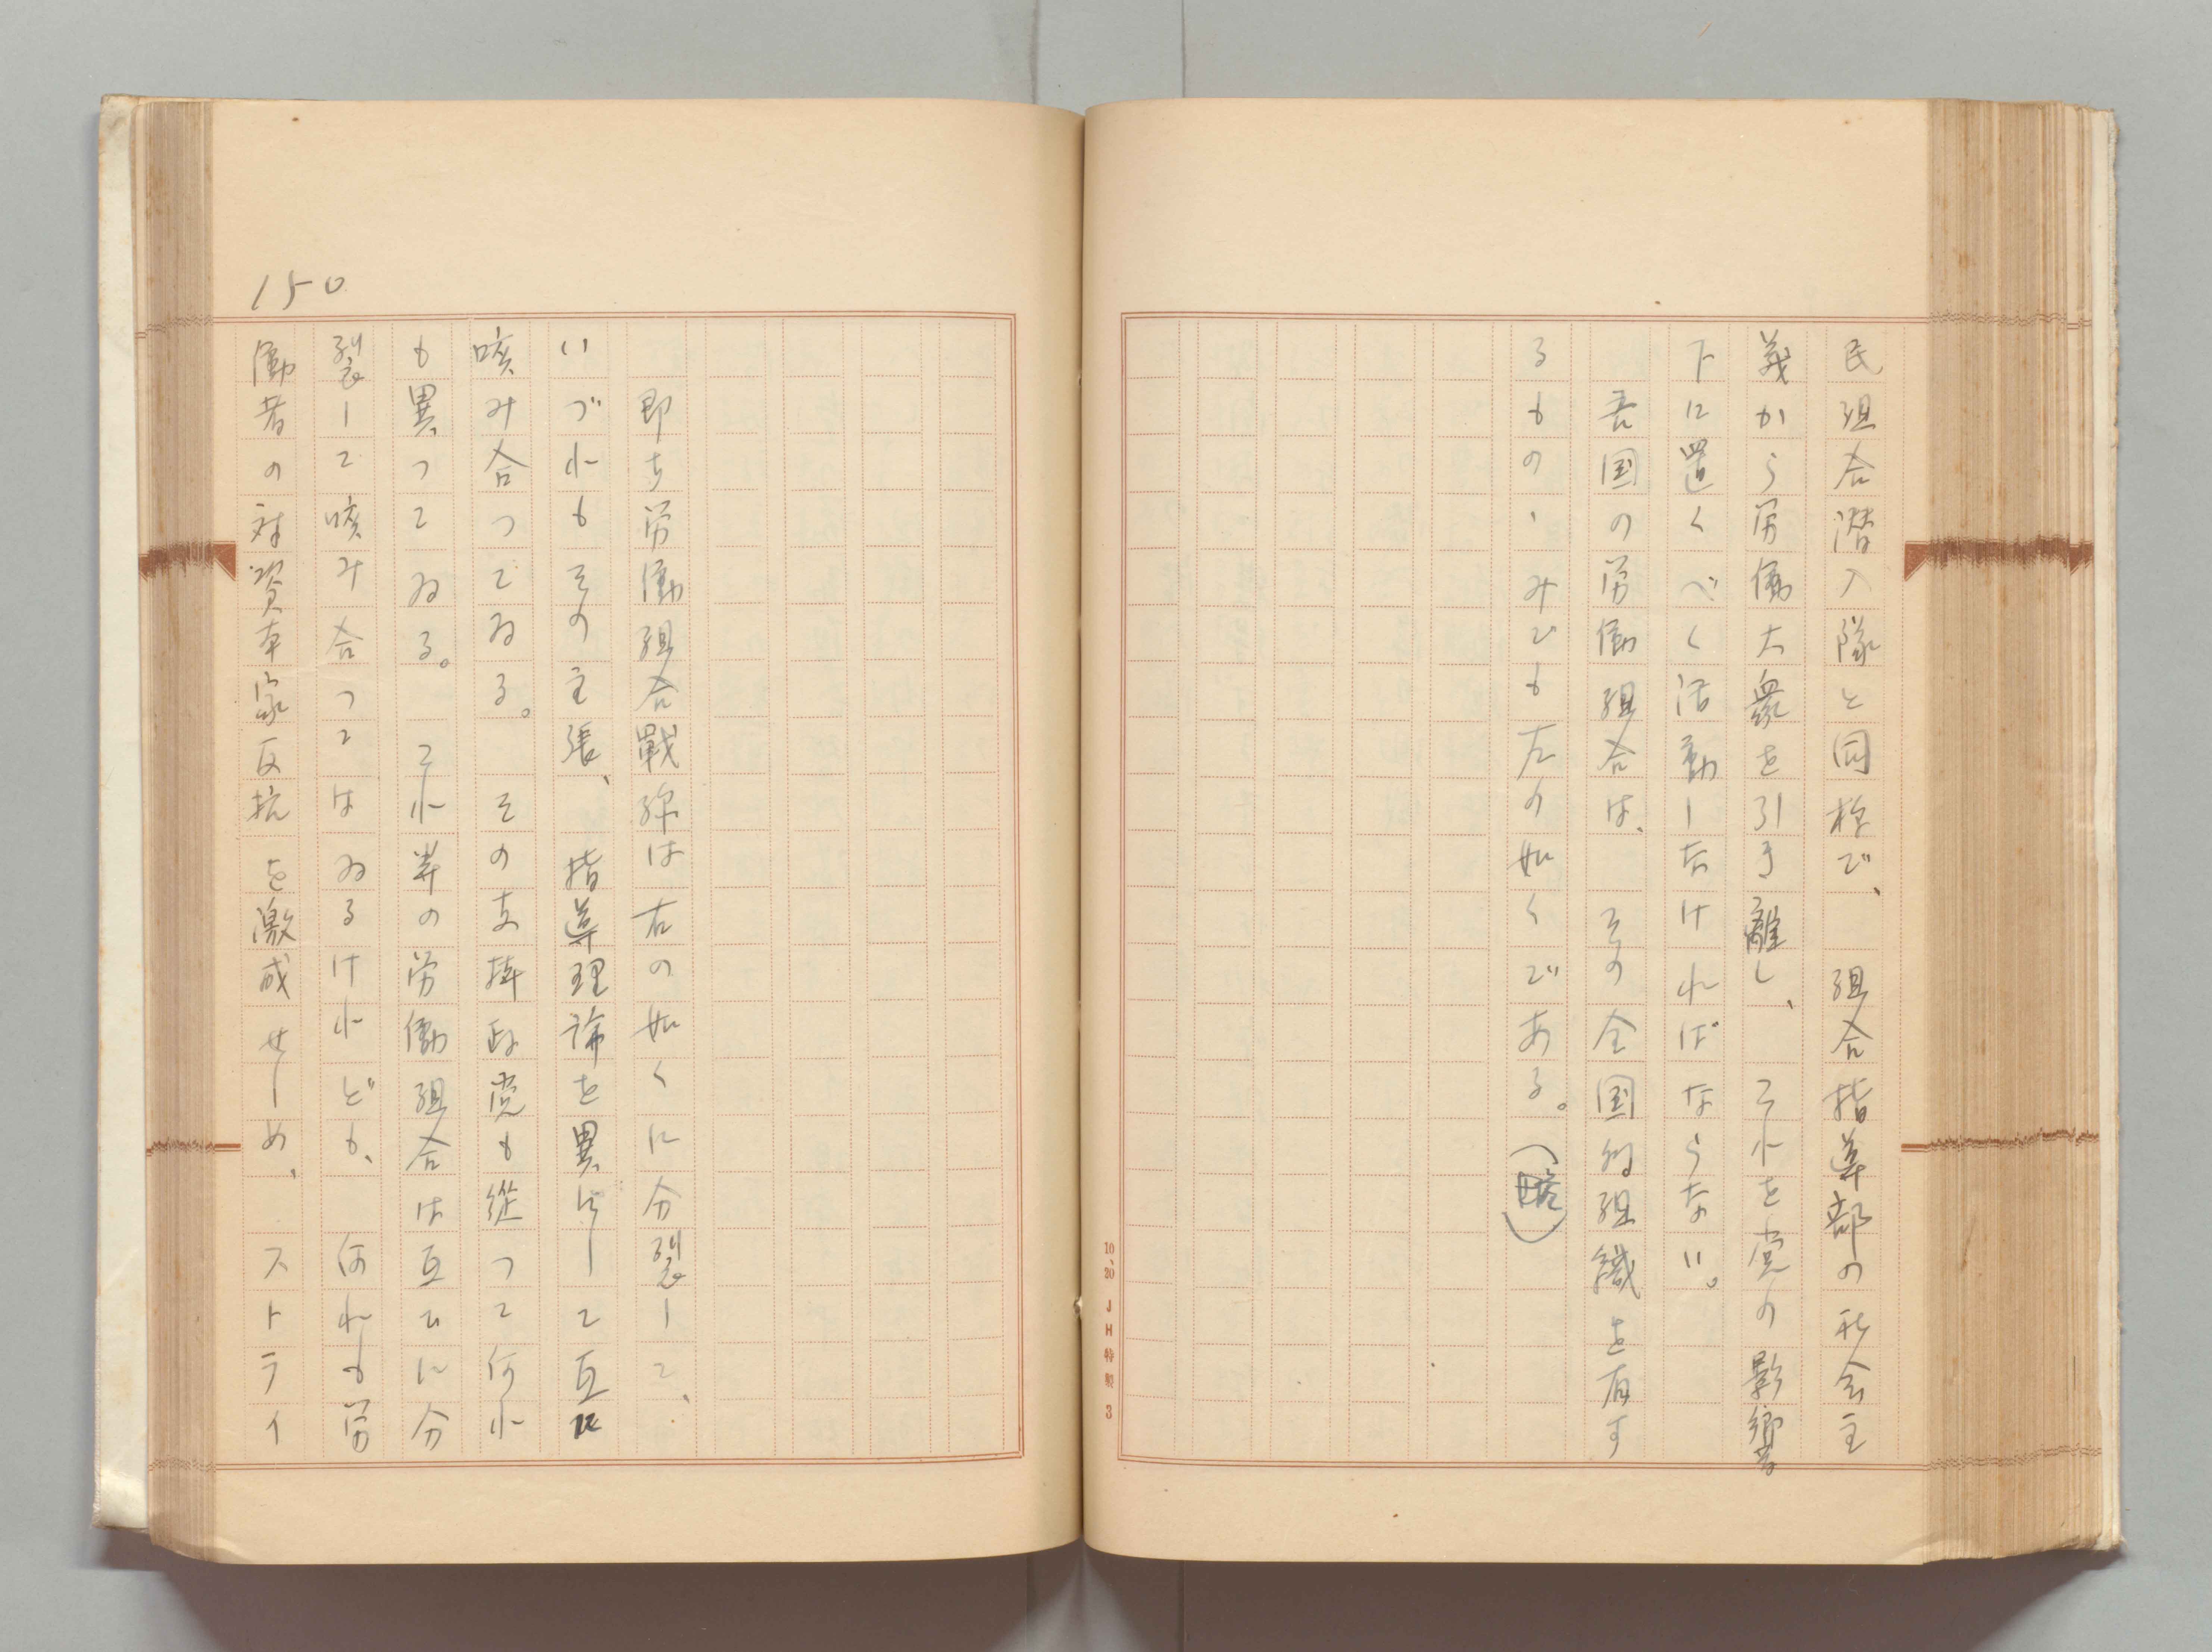 民組合潜入隊と同様で、　組合指導部の社会主
義から労働大衆を引き離し、　これを党の影響
下に置くべく活動しなければならない。
　吾国の労働組合は、　その全国的組織を有す
るもの、みでも左の如くである。（略）
10、20　JH特製　3
150
　即ち労働組合戦線は右の如くに分裂して、
いづれもその主張、　指導理論を異にして互に
咳み合つてゐる。　その支持政党も従つて何れ
も異つてゐる。　これ等の労働組合は互ひに分
裂して咳み合つてはゐるけれども、　何れも労
働者の対資本家反抗を激成せしめ、　ストライ